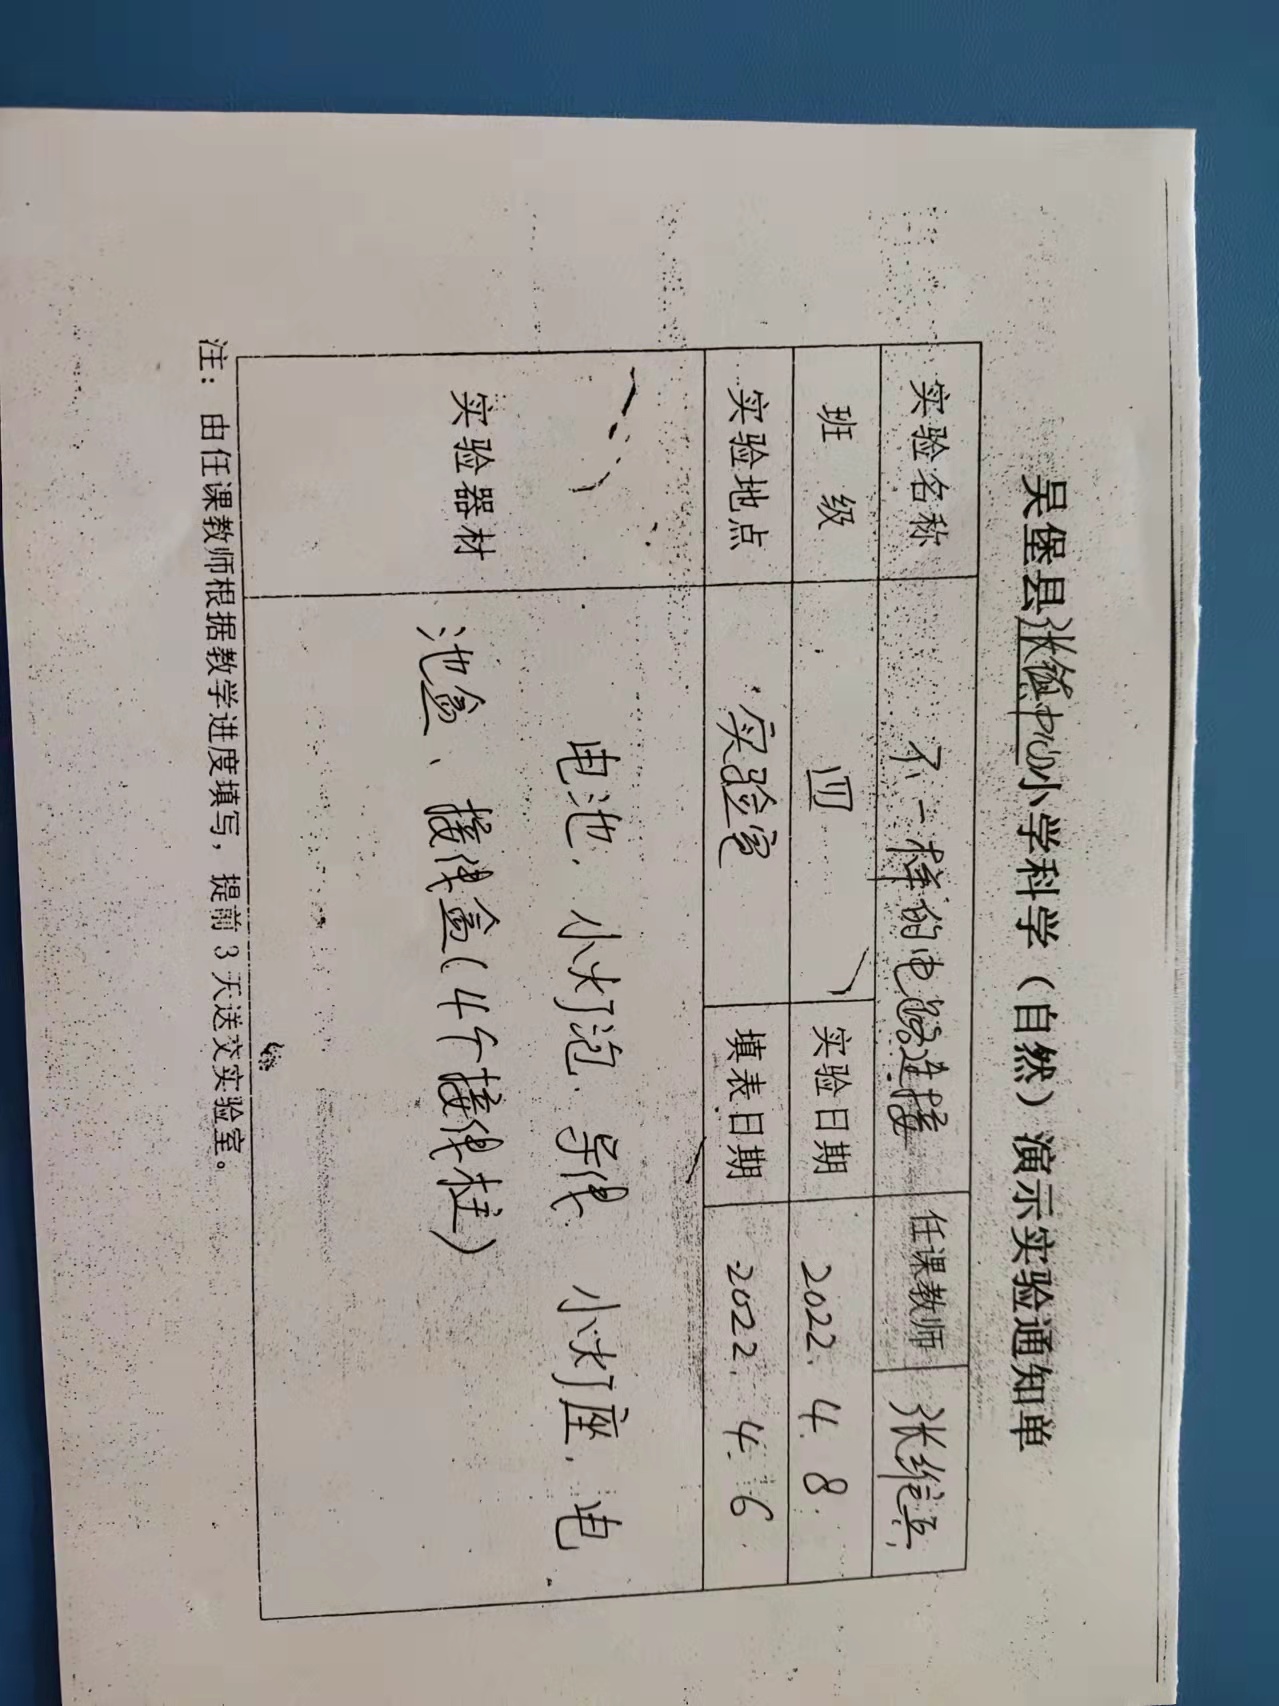 吴堡县张家山中心小学科学（自然）演示实验通知单
实验名称 不一样的电路连接 任课教师 张维兵
班 级 四 实验日期 2022.4.8.
实验地点 实验室 填表日期 2022.4.6.
实验器材 电池、小灯泡、导线、小灯座、电
池盒、接线盒(4个接线柱)
注：由任课教师根据教学进度填写，提前3天送交实验室。